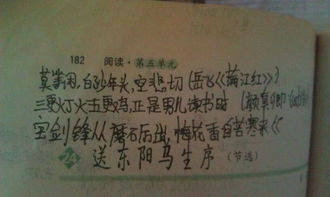 182 阅读·第五单元
莫等闲,白了少年头,空悲切(岳飞《满江红》)
三更灯火五更鸡,正是男儿读书时(颜真卿
宝剑锋从磨石后出,梅花香自苦寒来《
24 送东阳马生序(节选)